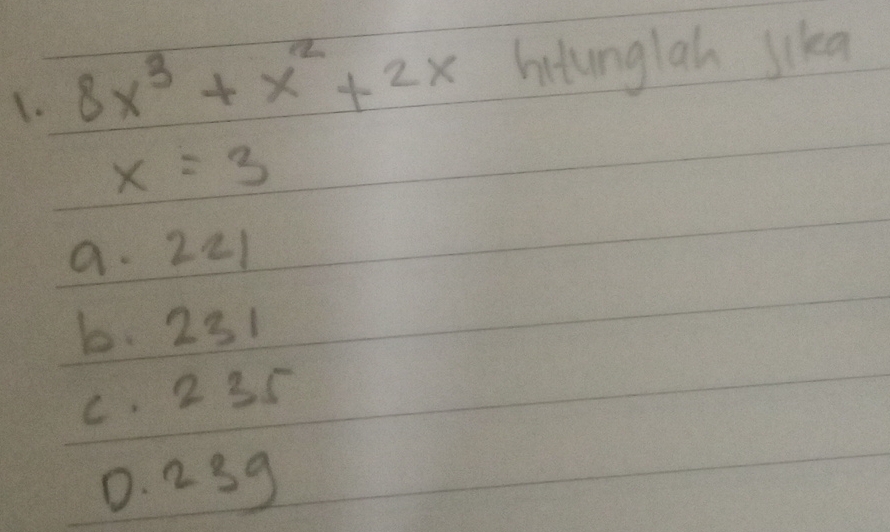 1. 8x³ + x² + 2x hitunglah jika
x = 3
a. 221
b. 231
c. 235
D. 239